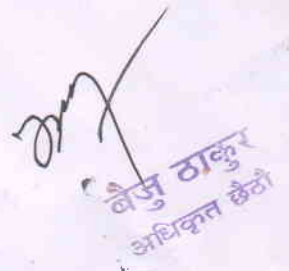 बैजु ठाकुर
अधिकृत छैठौ